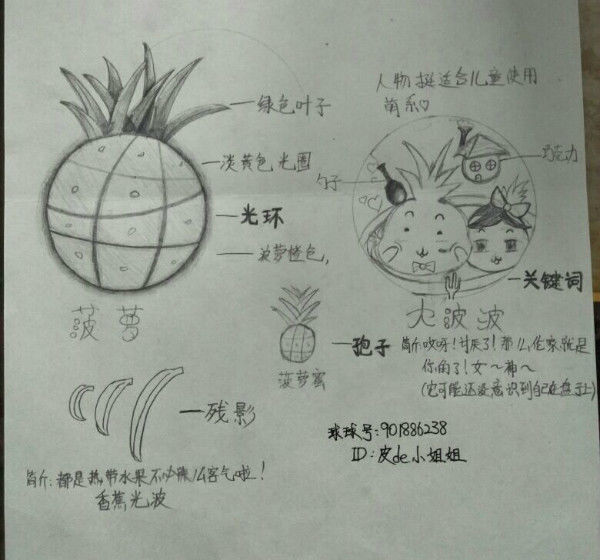 绿色叶子
人物挺适合儿童使用
萌系♡
淡黄色光圈
勺子
巧克力
光环
菠萝橙色,
关键词
菠萝
大波波
孢子
菠萝蜜
简介:哎呀!讨厌了!那么佗家就是
你的了!女~布~
(它可能还没意识到自己在盘子上)
残影
球球号:901886238
ID:皮de小姐姐
简介:都是热带水果不必那么客气啦!
香蕉光波